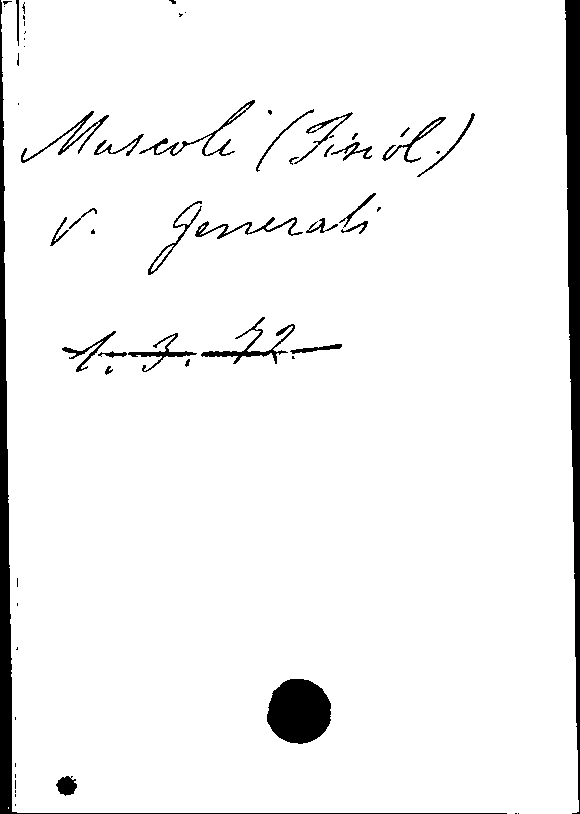 Muscoli (Fisiol.)
v. Generali
1. 3. 72